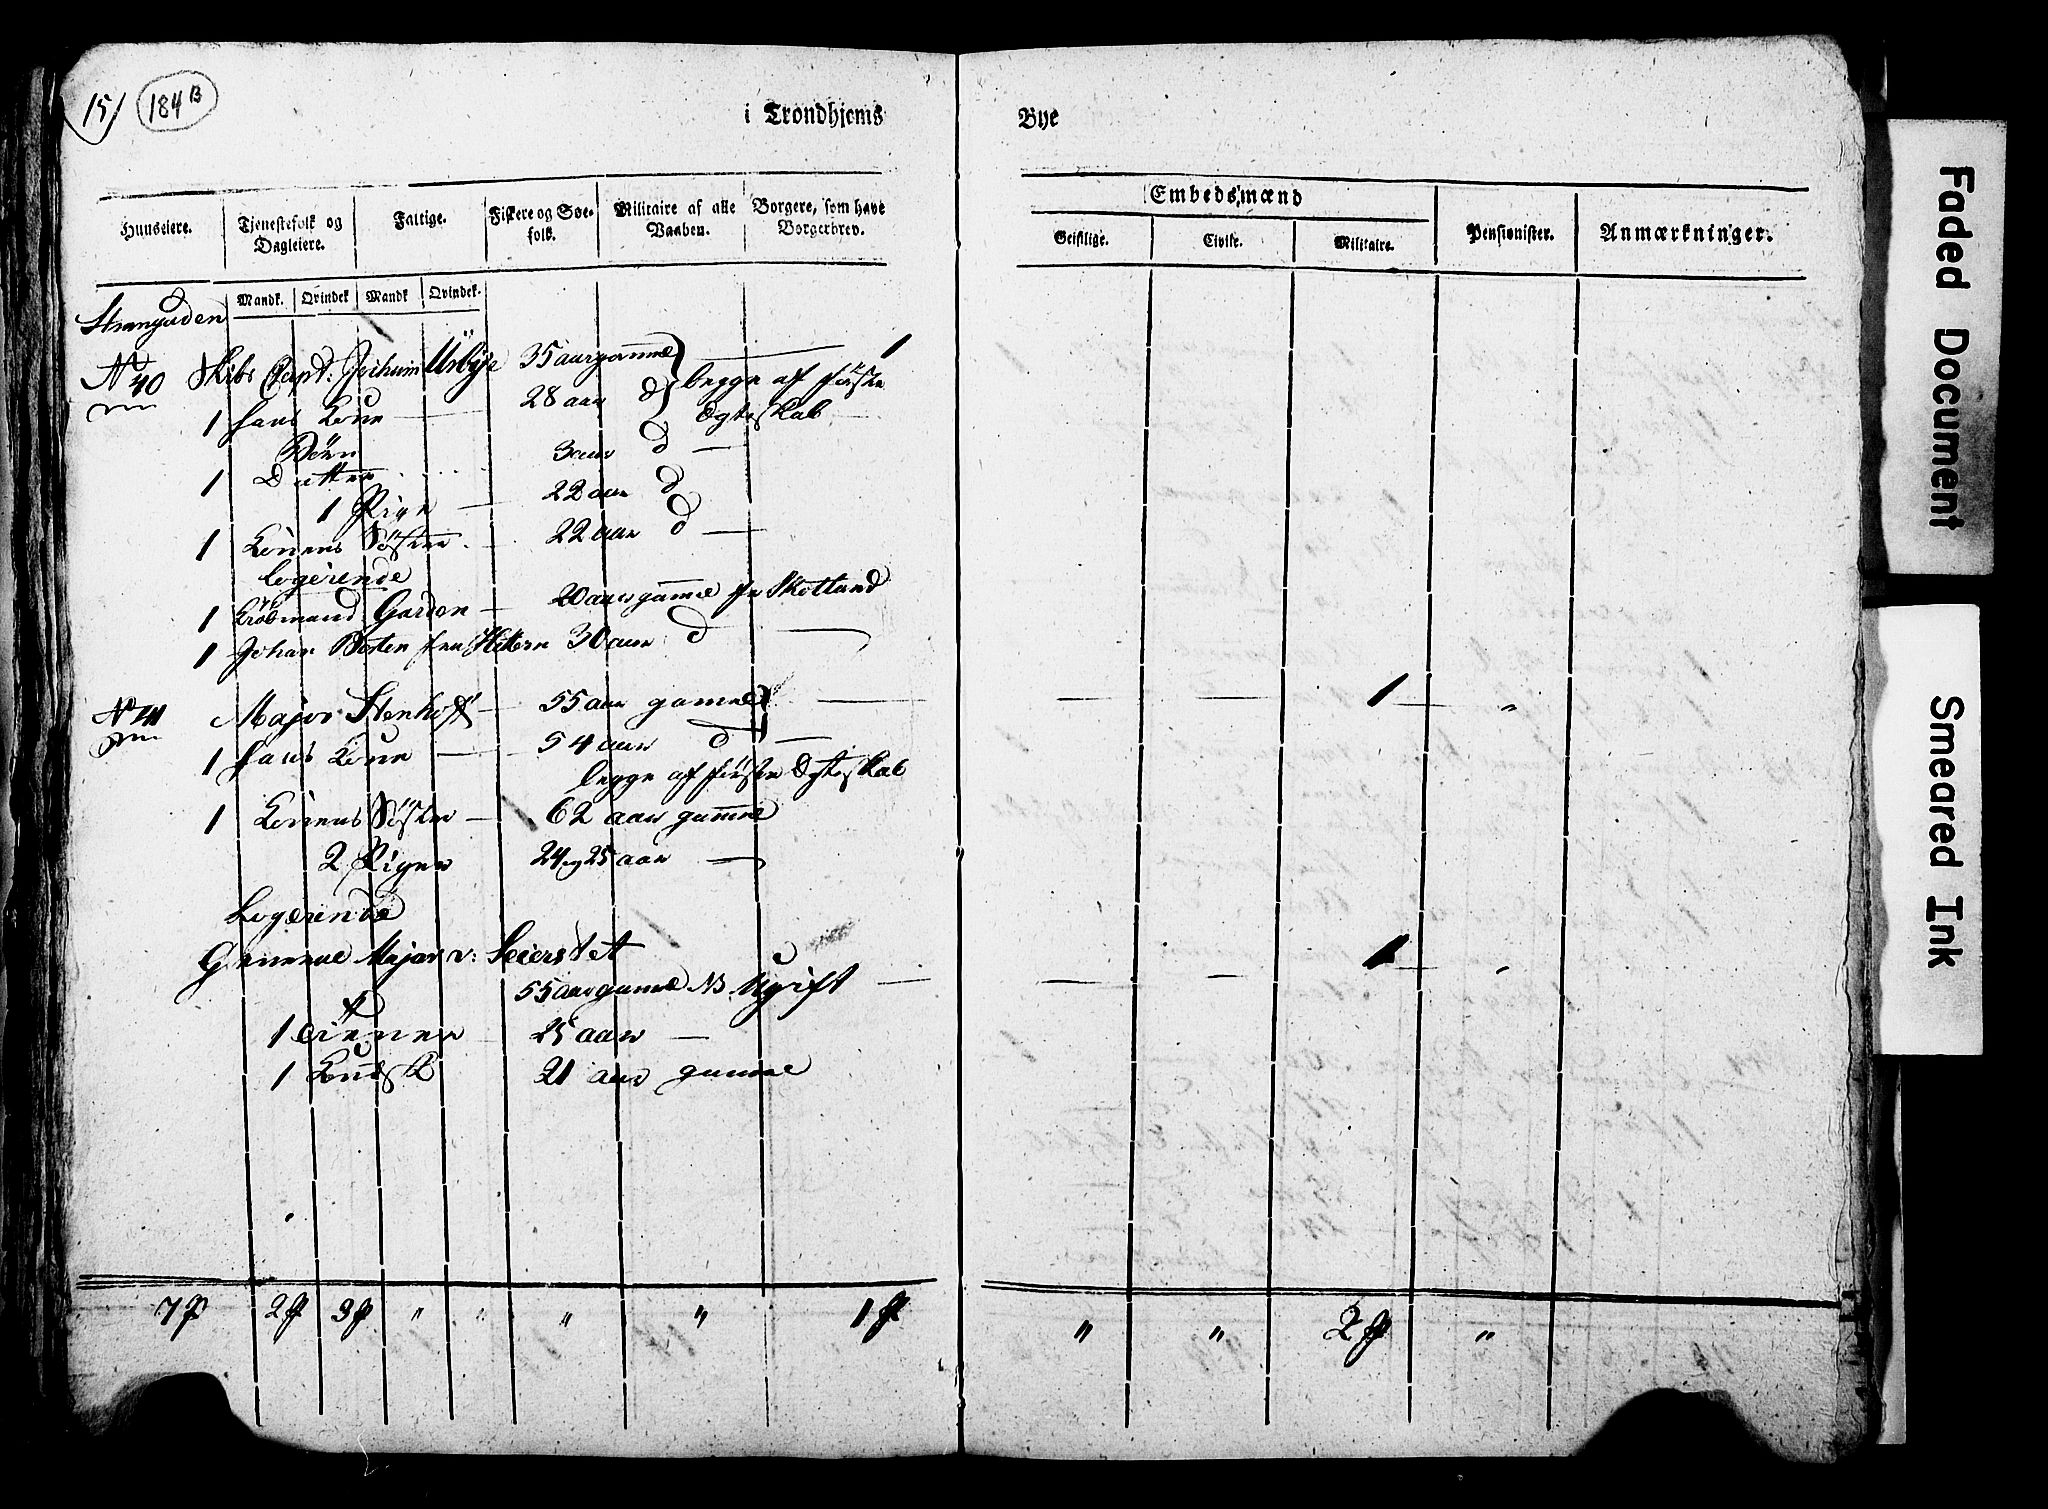 15/ 184 B
i Trondhjems Bye
Huuseiere. Tjenestefolk og Dagleiere. Fattige. Fiskere og Søefolk. Militaire af alle Vaaben. Borgere, som have Borgerbrev.
Embedsmænd
Geistlige. Civile. Militaire. Pensionister. Anmærkninger.
Mandk. Qvindek Mandk Qvindek.
Strangaden
No 40 Skibs Capt: Jochum 35 aar gamme 1
1 hans Kone 28 aar d begge af første Ægteskab
Børn
1 Datter 3 aar d
1 Pige 22 aar d
1 Konens Søster 22 aar d
logerende
1 Kiøbmand Garden 20 aar gamme fr Skotland
1 Johan fra Hittern 30 aar d
No 41 Major 55 aar gamme 1 "
1 hans Kone 54 aar d
begge af første Ægteskab
1 Konens Søster 62 aar gamme
2 Piger 24 og 25 aar
Logerende
General Major v: Seierstet 1
55 aar gamme NB Ugift
1 tiener 25 aar
1 Kudsk 21 aar gamme
7 P 2 P 3 P " " " " 1 P " " 2 P "
Faded Document
Smeared Ink